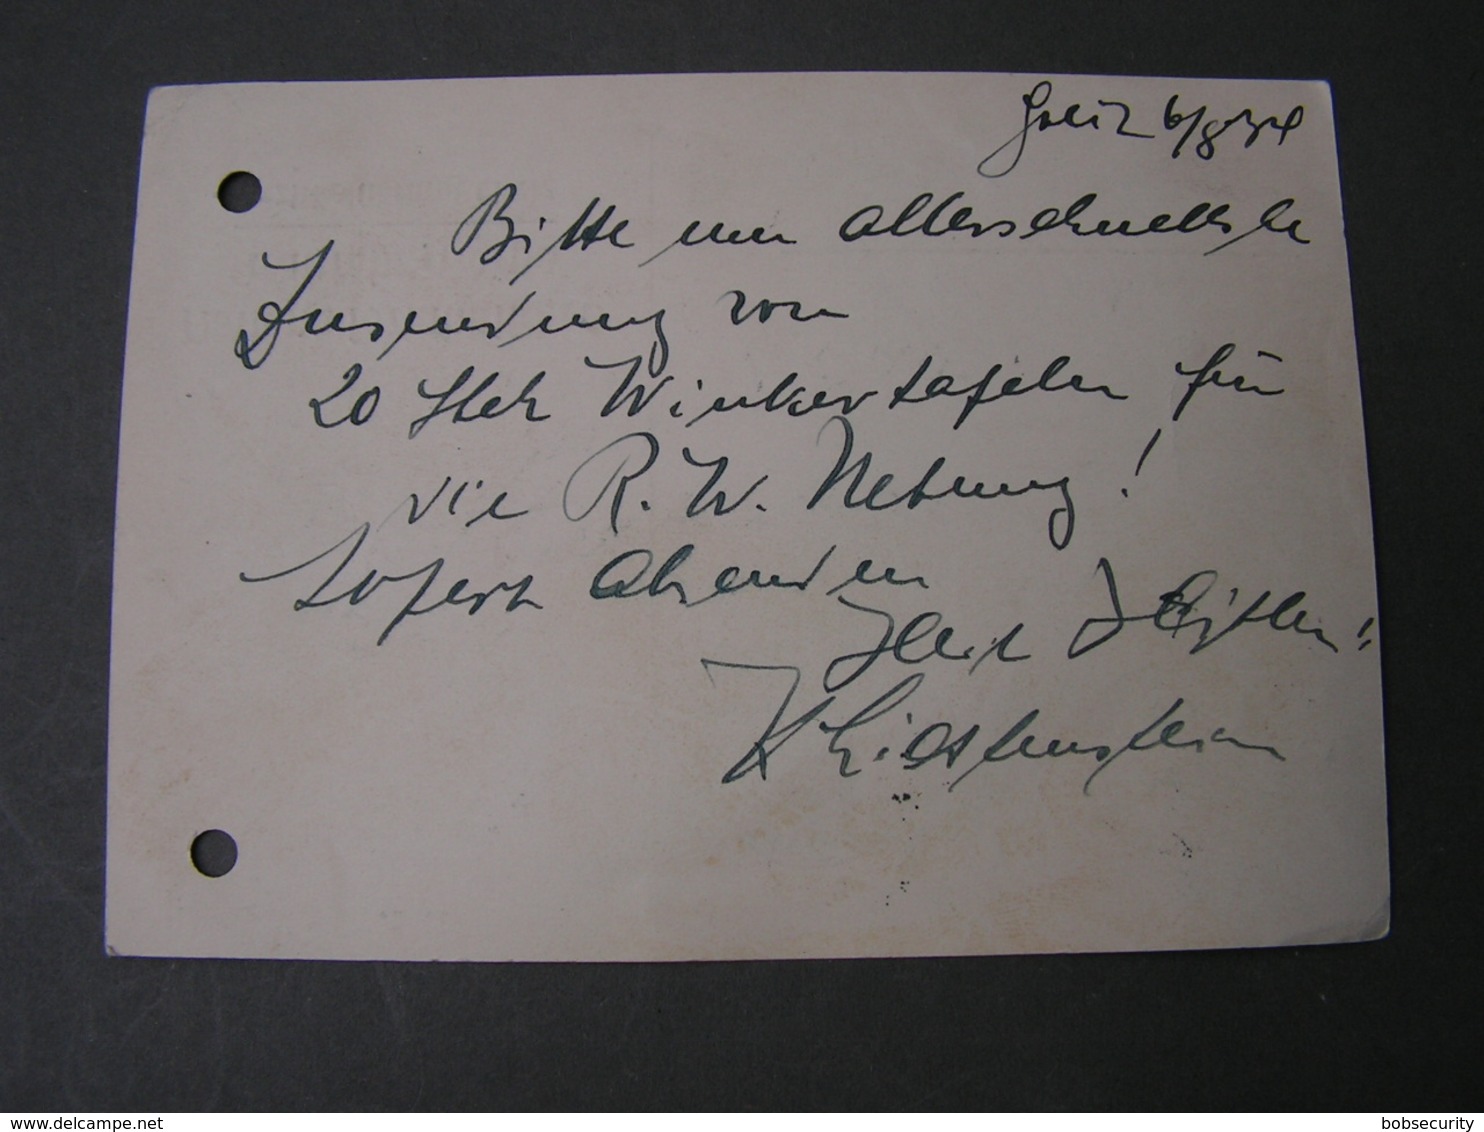 Greiz 6/8 34
Bitte um allerschnellste
Zusendung von
20 Stck Winkertafeln für
die R. W. Uebung!
Sofort absenden
Heil Hitler!
bobsecurity